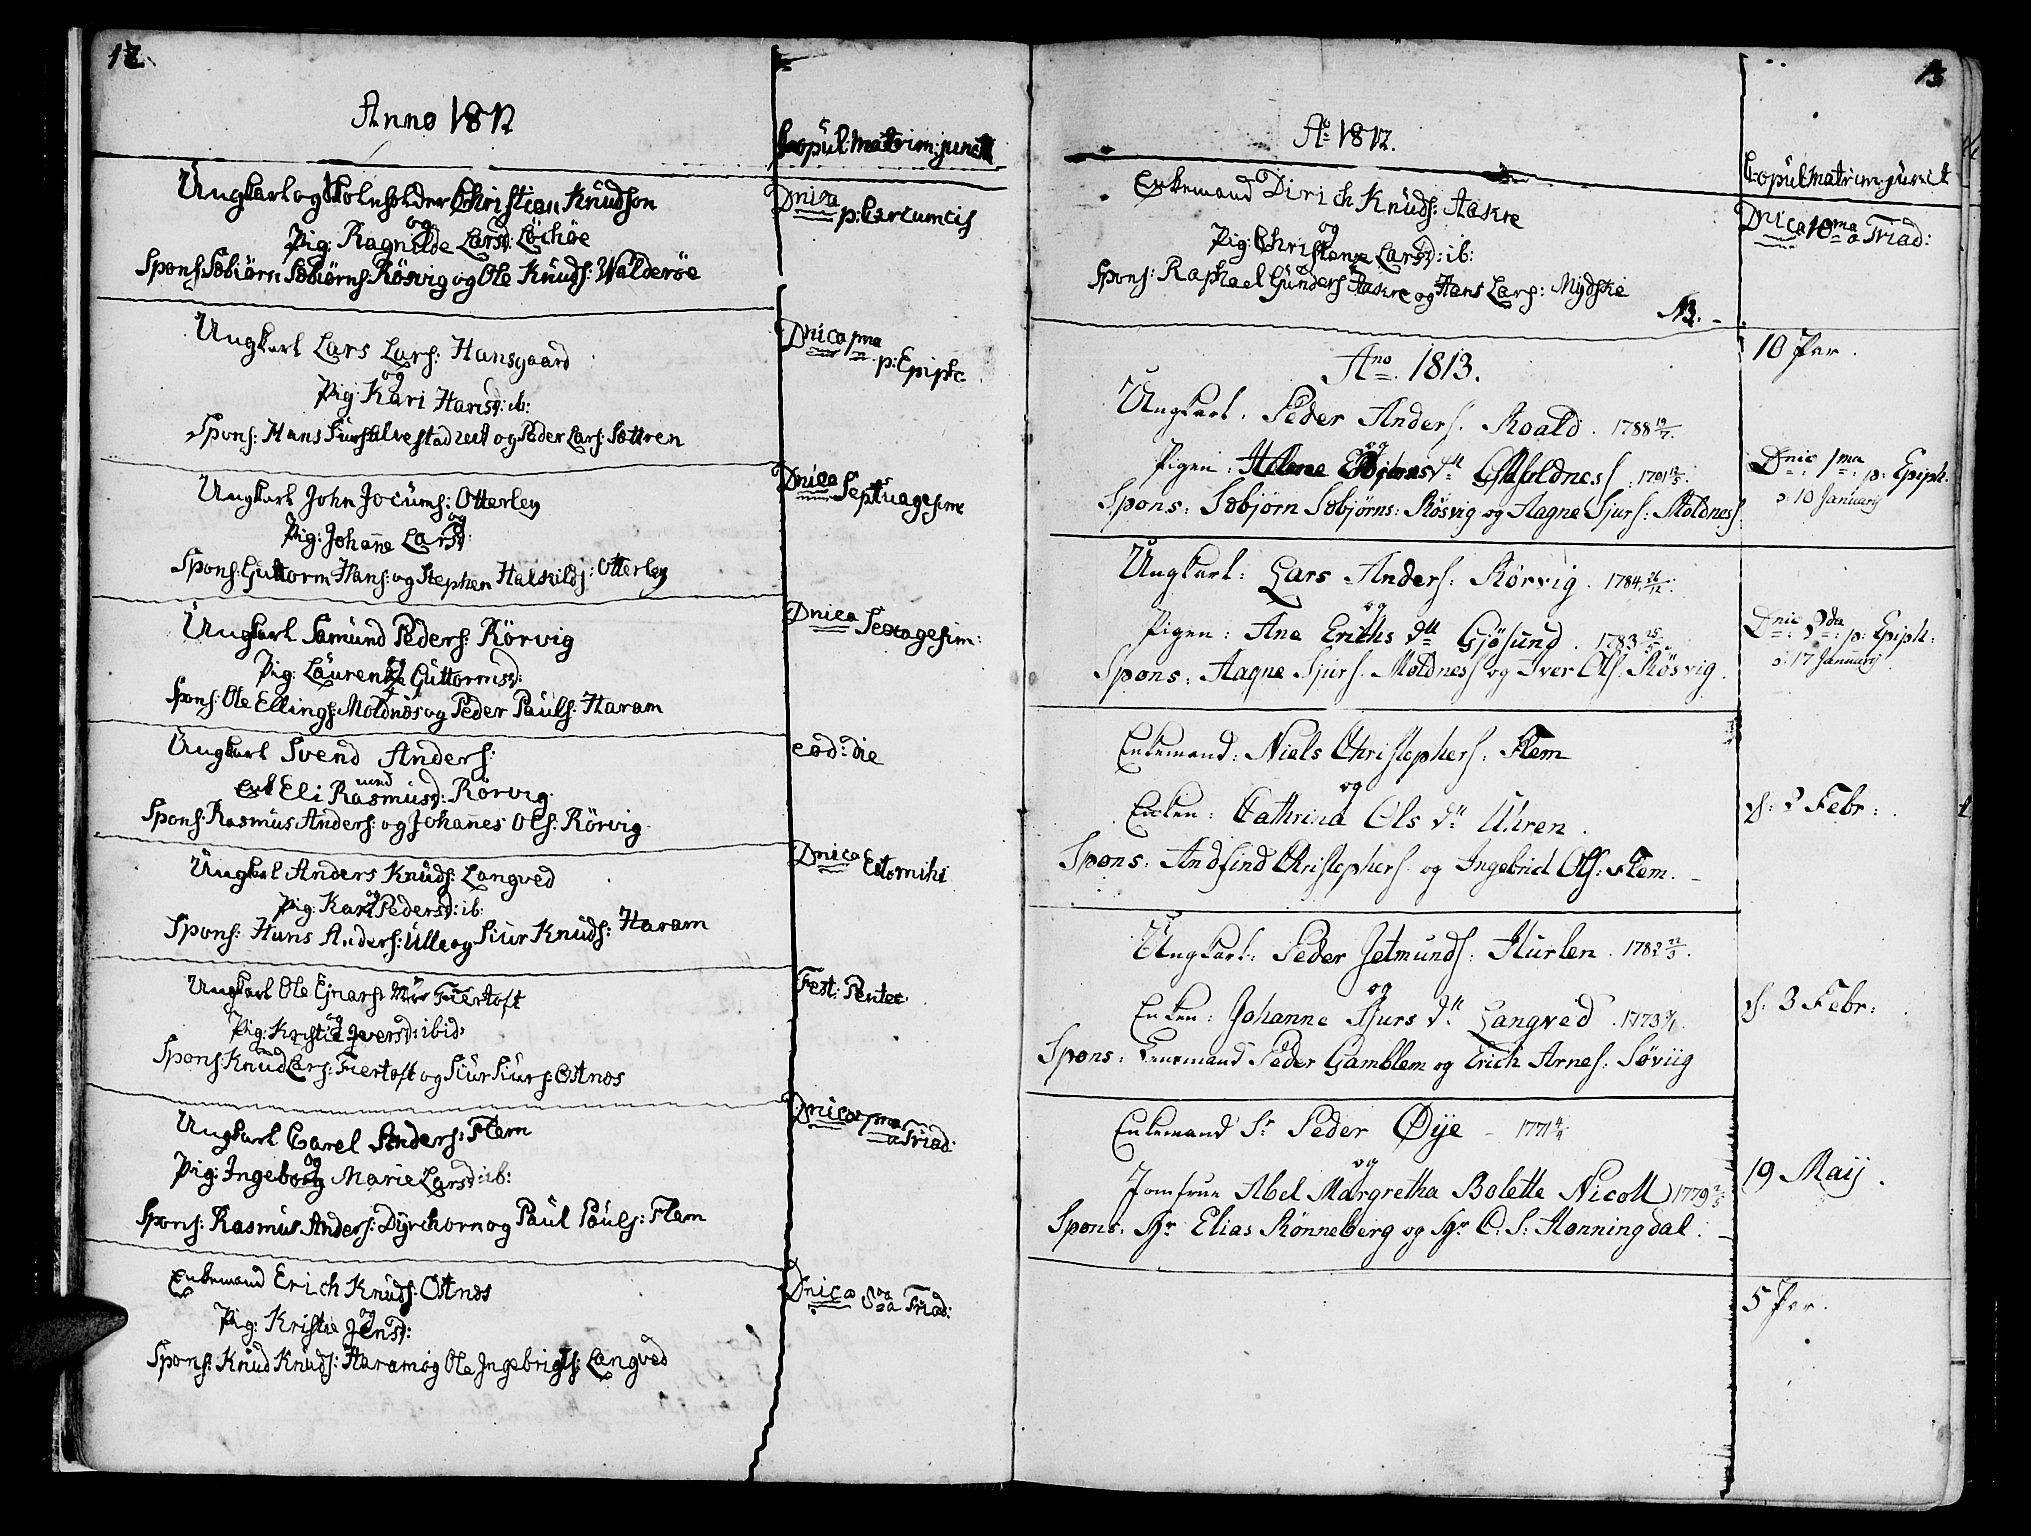 12.
Anno 1812
Copul: matrim: juncti
Ungkarl og Christian Knudson
og
Pig: Ragnilde Larsd: Löchöe
Spons: Sæbiörn Sæbiörns: Rösvig og Ole Knuds: Walderöe
Dnica p: Circumcis
Ungkarl Lars Lars: Hansgaard
og
Pig: Kari Hansd: ib:
Spons: Hans og Peder Lars: Sættren
Dnica 1ma p: Epiph:
Ungkarl John Jocums: Otterley
og
Pig: Johanne Larsd:
Spons: Guttorm Hans: og Stephen Halkilds: Otterley
Dnica Septuagesim:
Ungkarl Samund Peders: Rörvig
og
Pig: Laurentze Guttormsd:
Spons: Ole Ellings: Moldnæs og Peder Pauls: Haram
Dnica Sexagesim:
Ungkarl Svend Anders:
med
Enk Eli Rasmusd: Rörvig
Spons: Rasmus Anders: og Johannes Ols: Rörvig
eod: die
Ungkarl Anders Knuds: Langved
og
Pig: Kari Pedersd: ib:
Spons: Hans Anders: Ulle og Siur Knuds: Haram
Dnica Estomihi
Ungkarl Ole Ejnars: Fiertoft
og
Pig: Kristie Iversd: ibid:
Spons: Knud Lars: Fiertoft og Siur Siurs: Ostnæs
Fest: Pentec:
Ungkarl Carel Anders: Flem
og
Pig: Ingeborg Marie Larsd: ib:
Spons: Rasmus Anders: Dyrchorn og Paul Pauls: Flem
Dnica 1ma a Triad:
Enkemand Erich Knuds: Ostnæs
og
Pig: Kristie Jensd:
Spons: Knud Knuds: Haram og Ole Ingebrigts: Langved
Dnica a Triad:
13
Ao 1812.
Copul matrim: juncti
Enkemand Dirich Knuds: Aakre
og
Pig: Christense Larsd: ib:
Spons: Raphael Gunders Aakre og Hans Lars: Mydske
Dnica 10ma a Triad:
10 Par.
Ano 1813.
Ungkarl. Peder Anders. Roald. 1788 19/7.
og
Pigen: Helene
Spons: Sæbjørn Sæbjørns: Røsvig og Aagne Sjurs: Moldness.
Dnic 1ma p: Epiph.
d: 10 Januarij
Ungkarl: Lars Anders: Rörvig. 1784 26/12.
og
Pigen: Ane Erichs dtr Gjøsund. 1783
Spons: Aagne Sjurs. Moldness og Iver Ols. Røsvig.
Dnic: 2da p: Epiph:
d: 17 Januarij.
Enkemand: Niels Christophers: Flem
og
Enken: Cathrina Ols dtr Uhren.
Spons: Andfind Christophers. og Ingebrict Ols: Flem.
d: 3 Febr:
Ungkarl: Peder Jetmunds: Hurlen. 1782 22/3.
og
Enken: Johanne Sjurs dtr Langved. 1773
Spons: Lensmand Peder Gamblem og Erich Arnes: Søviig
d: 3 Febr:
Enkemand Sr Peder Øye - 1771 4/4
og
Jomfrue Abel Margretha Bolette Nicoll 1779 2/5
Spons: Hr Elias Rønneberg og Hr C. S: Honningdal.
19 Maij.
5 Par.